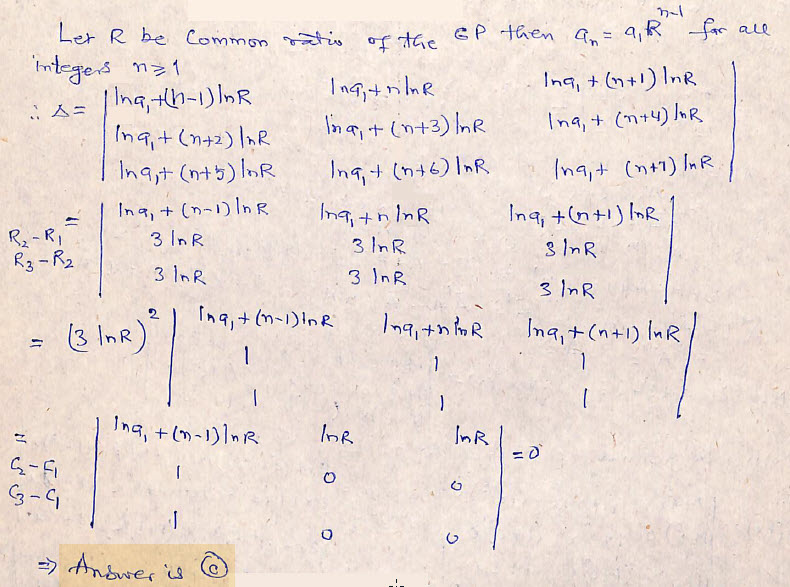 Let R be Common ratio of the GP then aₙ = a₁Rⁿ⁻¹ for all
integers n ≥ 1
∴ Δ = | lna₁+(n-1)lnR   lna₁+nlnR   lna₁+(n+1)lnR |
| lna₁+(n+2)lnR   lna₁+(n+3)lnR   lna₁+(n+4)lnR |
| lna₁+(n+5)lnR   lna₁+(n+6)lnR   lna₁+(n+7)lnR |
= | lna₁+(n-1)lnR   lna₁+nlnR   lna₁+(n+1)lnR |
R₂-R₁ | 3lnR   3lnR   3lnR |
R₃-R₂ | 3lnR   3lnR   3lnR |
= (3lnR)² | lna₁+(n-1)lnR   lna₁+nlnR   lna₁+(n+1)lnR |
| 1   1   1 |
| 1   1   1 |
= | lna₁+(n-1)lnR   lnR   lnR | = 0
C₂-C₁ | 1   0   0 |
C₃-C₁ | 1   0   0 |
⇒ Answer is ⓒ